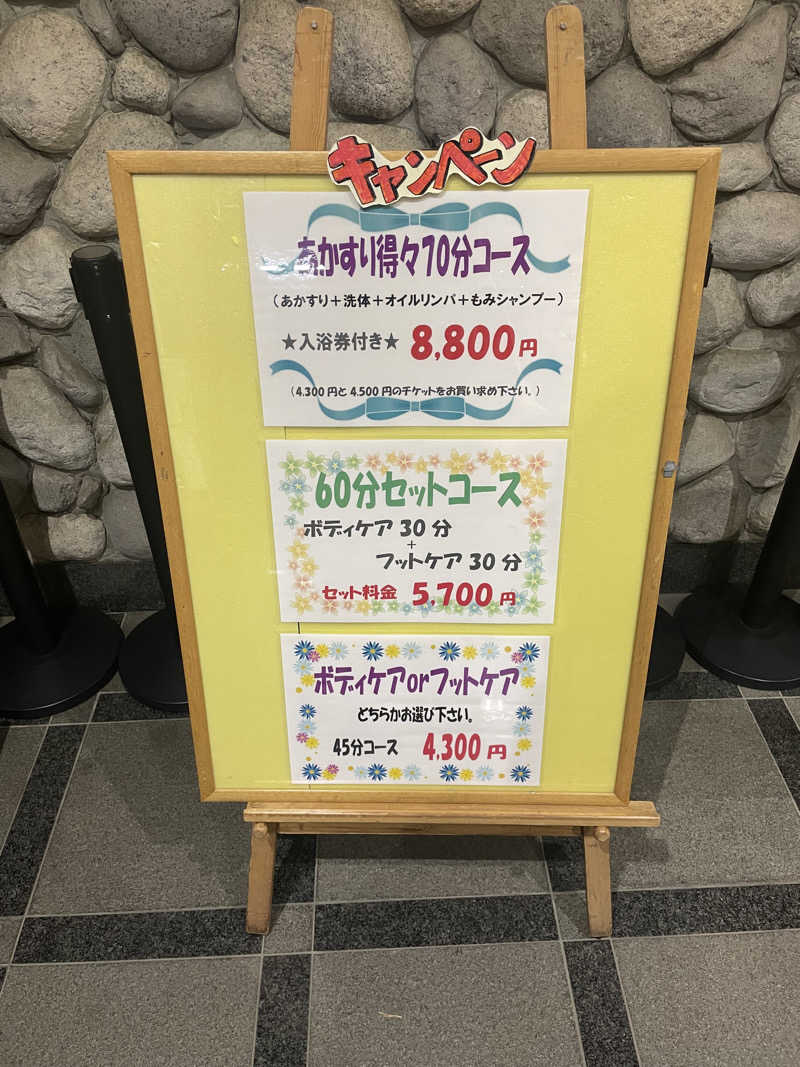 キャンペーン
あかすり得々70分コース
（あかすり＋洗体＋オイルリンパ＋もみシャンプー）
★入浴券付き★ 8,800円
（4.300円と4.500円のチケットをお買い求め下さい。）
60分セットコース
ボディケア 30分
+
フットケア 30分
セット料金 5,700円
ボディケアorフットケア
どちらかお選び下さい。
45分コース 4,300円